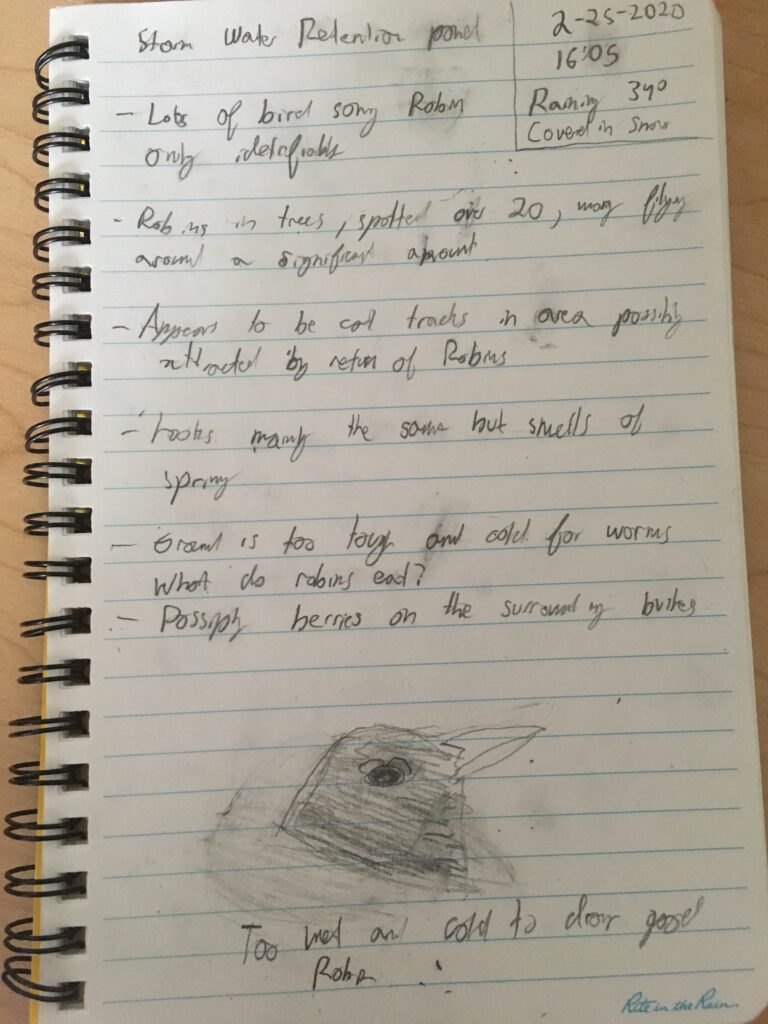 Storm Water Retention pond
2-25-2020
16:05
Raining 34°
Covered in Snow
- Lots of bird song Robin
only identifiable
- Robins in trees, spotted over 20, many flying
around a significant amount
- Appears to be cat tracks in area possibly
attracted by return of Robins
- Looks mainly the same but smells of
spring
- Ground is too tough and cold for worms
What do robins eat?
- Possibly berries on the surrounding
Too wet and cold to draw good
Robin
Rite in the Rain